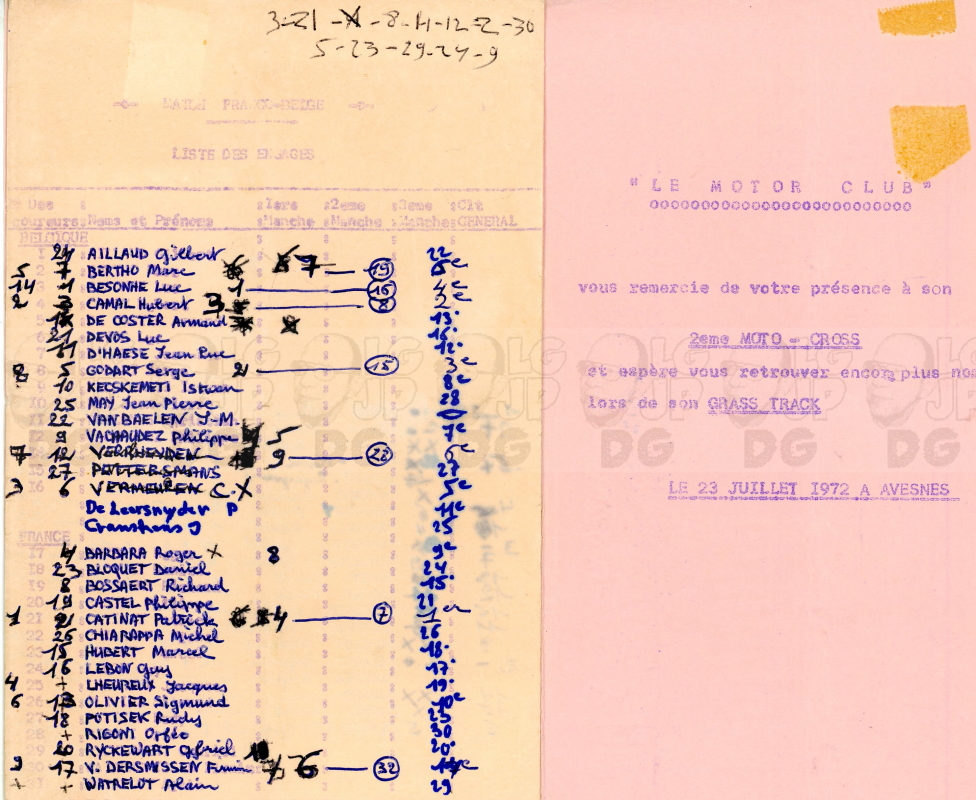 3-21-X-8-14-12-2-30
5-23-29-24-9
MATCH FRANCO-BELGE
LISTE DES ENGAGES
Des : : 1ere : 2eme : 3eme : Clt
coureurs: Noms et Prénoms : Manche : Manche : Manche : GENERAL
BELGIQUE
24 AILLAUD Gilbert 22
5 7 BERTHO Marc 7 19
14 1 BESONHE Luc 1 16 4e
2 3 CAMAL Hubert 3 8 2e
DE COSTER Armand 13
21 DEVOS Luc 16
11 D'HAESE Jean Luc 12
8 5 GODART Serge 2 15 3e
10 KECSKEMETI Istvan 8e
25 MAY Jean Pierre 28
22 VANBAELEN J-M.
9 VACHAUDEZ Philippe 5 7e
7 12 VERHEYDEN 9 22 6e
27 PETTERSMANS 27
3 6 VERMEUREN C.X 5e
De Leersnyder P 11e
25
FRANCE
17 4 BARBARA Roger X 8 9e
18 23 BLOQUET Daniel 24
19 8 BOSSAERT Richard 15
20 19 CASTEL Philippe 21
1 21 CATINAT Patrick 4 7 1
22 26 CHIARAPPA Michel 26
23 15 HUBERT Marcel 18
24 16 LEBON Guy 17
4 25 + LHEUREUX Jacques 19
6 26 13 OLIVIER Sigmund 10e
27 18 POTISEK Rudy 23
28 + RIGONI Orféo 30
29 20 RYCKEWART Gabriel 20
9 17 V. DERSMISSEN Firmin 6 32
+ + WATRELOT Alain 29
"LE MOTOR CLUB"
oooooooooooooooooooooooooo
vous remercie de votre présence à son
2eme MOTO - CROSS
et espère vous retrouver encor plus nom
lors de son GRASS TRACK
LE 23 JUILLET 1972 A AVESNES
LG JP DG